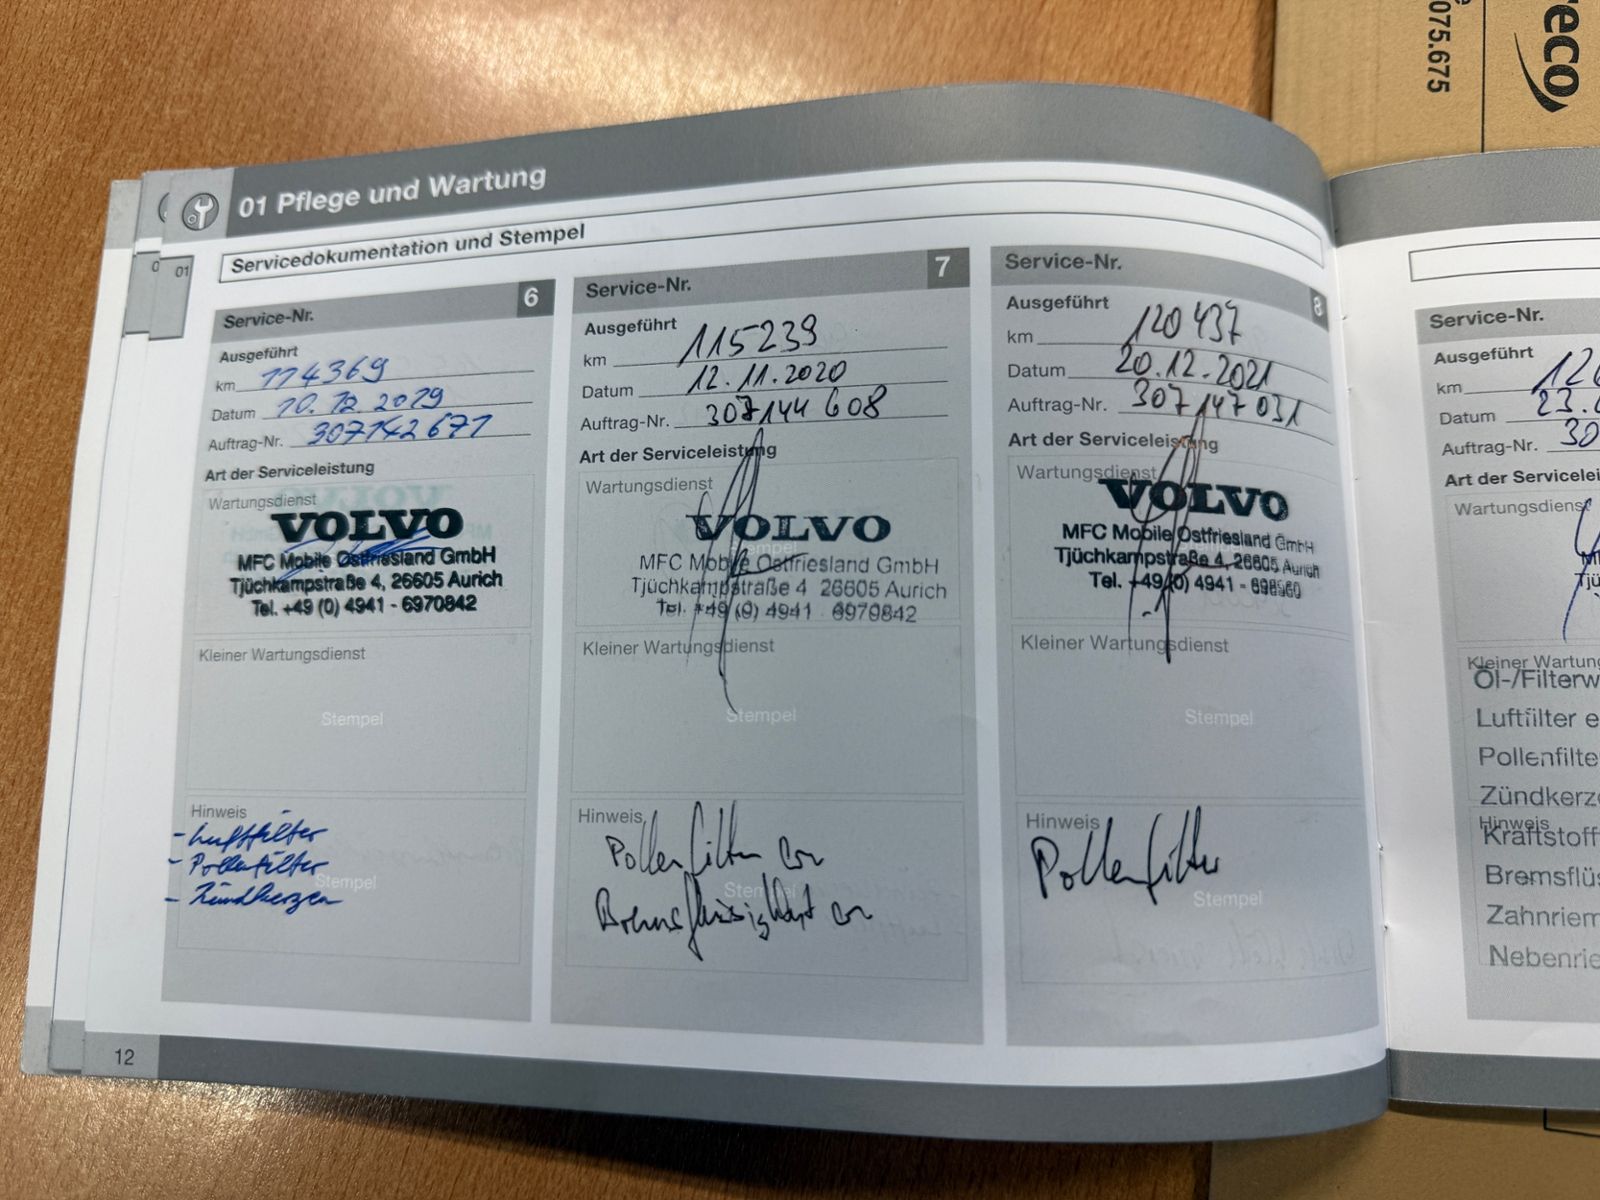 01 Pflege und Wartung
Servicedokumentation und Stempel
01
Service-Nr. 6
Ausgeführt
km 114369
Datum 10.12.2019
Auftrag-Nr. 307142671
Art der Serviceleistung
Wartungsdienst
VOLVO
MFC Mobile Ostfriesland GmbH
Tjüchkampstraße 4, 26605 Aurich
Tel. +49 (0) 4941 - 6970842
Kleiner Wartungsdienst
Stempel
Hinweis
- Luftfilter
- Pollenfilter
- Zündkerzen
Stempel
Service-Nr. 7
Ausgeführt
km 115239
Datum 12.11.2020
Auftrag-Nr. 307144608
Art der Serviceleistung
Wartungsdienst
VOLVO
Stempel
MFC Mobile Ostfriesland GmbH
Tjüchkampstraße 4 26605 Aurich
Tel. +49 (0) 4941 - 6970842
Kleiner Wartungsdienst
Stempel
Hinweis
Pollenfilter
Stempel
Bremsflüssigkeit
Service-Nr. 8
Ausgeführt
km 120437
Datum 20.12.2021
Auftrag-Nr. 307147031
Art der Serviceleistung
Wartungsdienst
VOLVO
MFC Mobile Ostfriesland GmbH
Tjüchkampstraße 4, 26605 Aurich
Tel. +49 (0) 4941 -
Kleiner Wartungsdienst
Stempel
Hinweis
Pollenfilter
Stempel
12
Service-Nr.
Ausgeführt
km 12
Datum 23.
Auftrag-Nr. 30
Art der Servicelei
Wartungsdienst
Kleiner Wartung
Öl-/Filterw
Luftfilter e
Pollenfilte
Zündkerz
Hinweis
Kraftstoff
Bremsflüs
Zahnriem
Nebenrie
075.675
reco